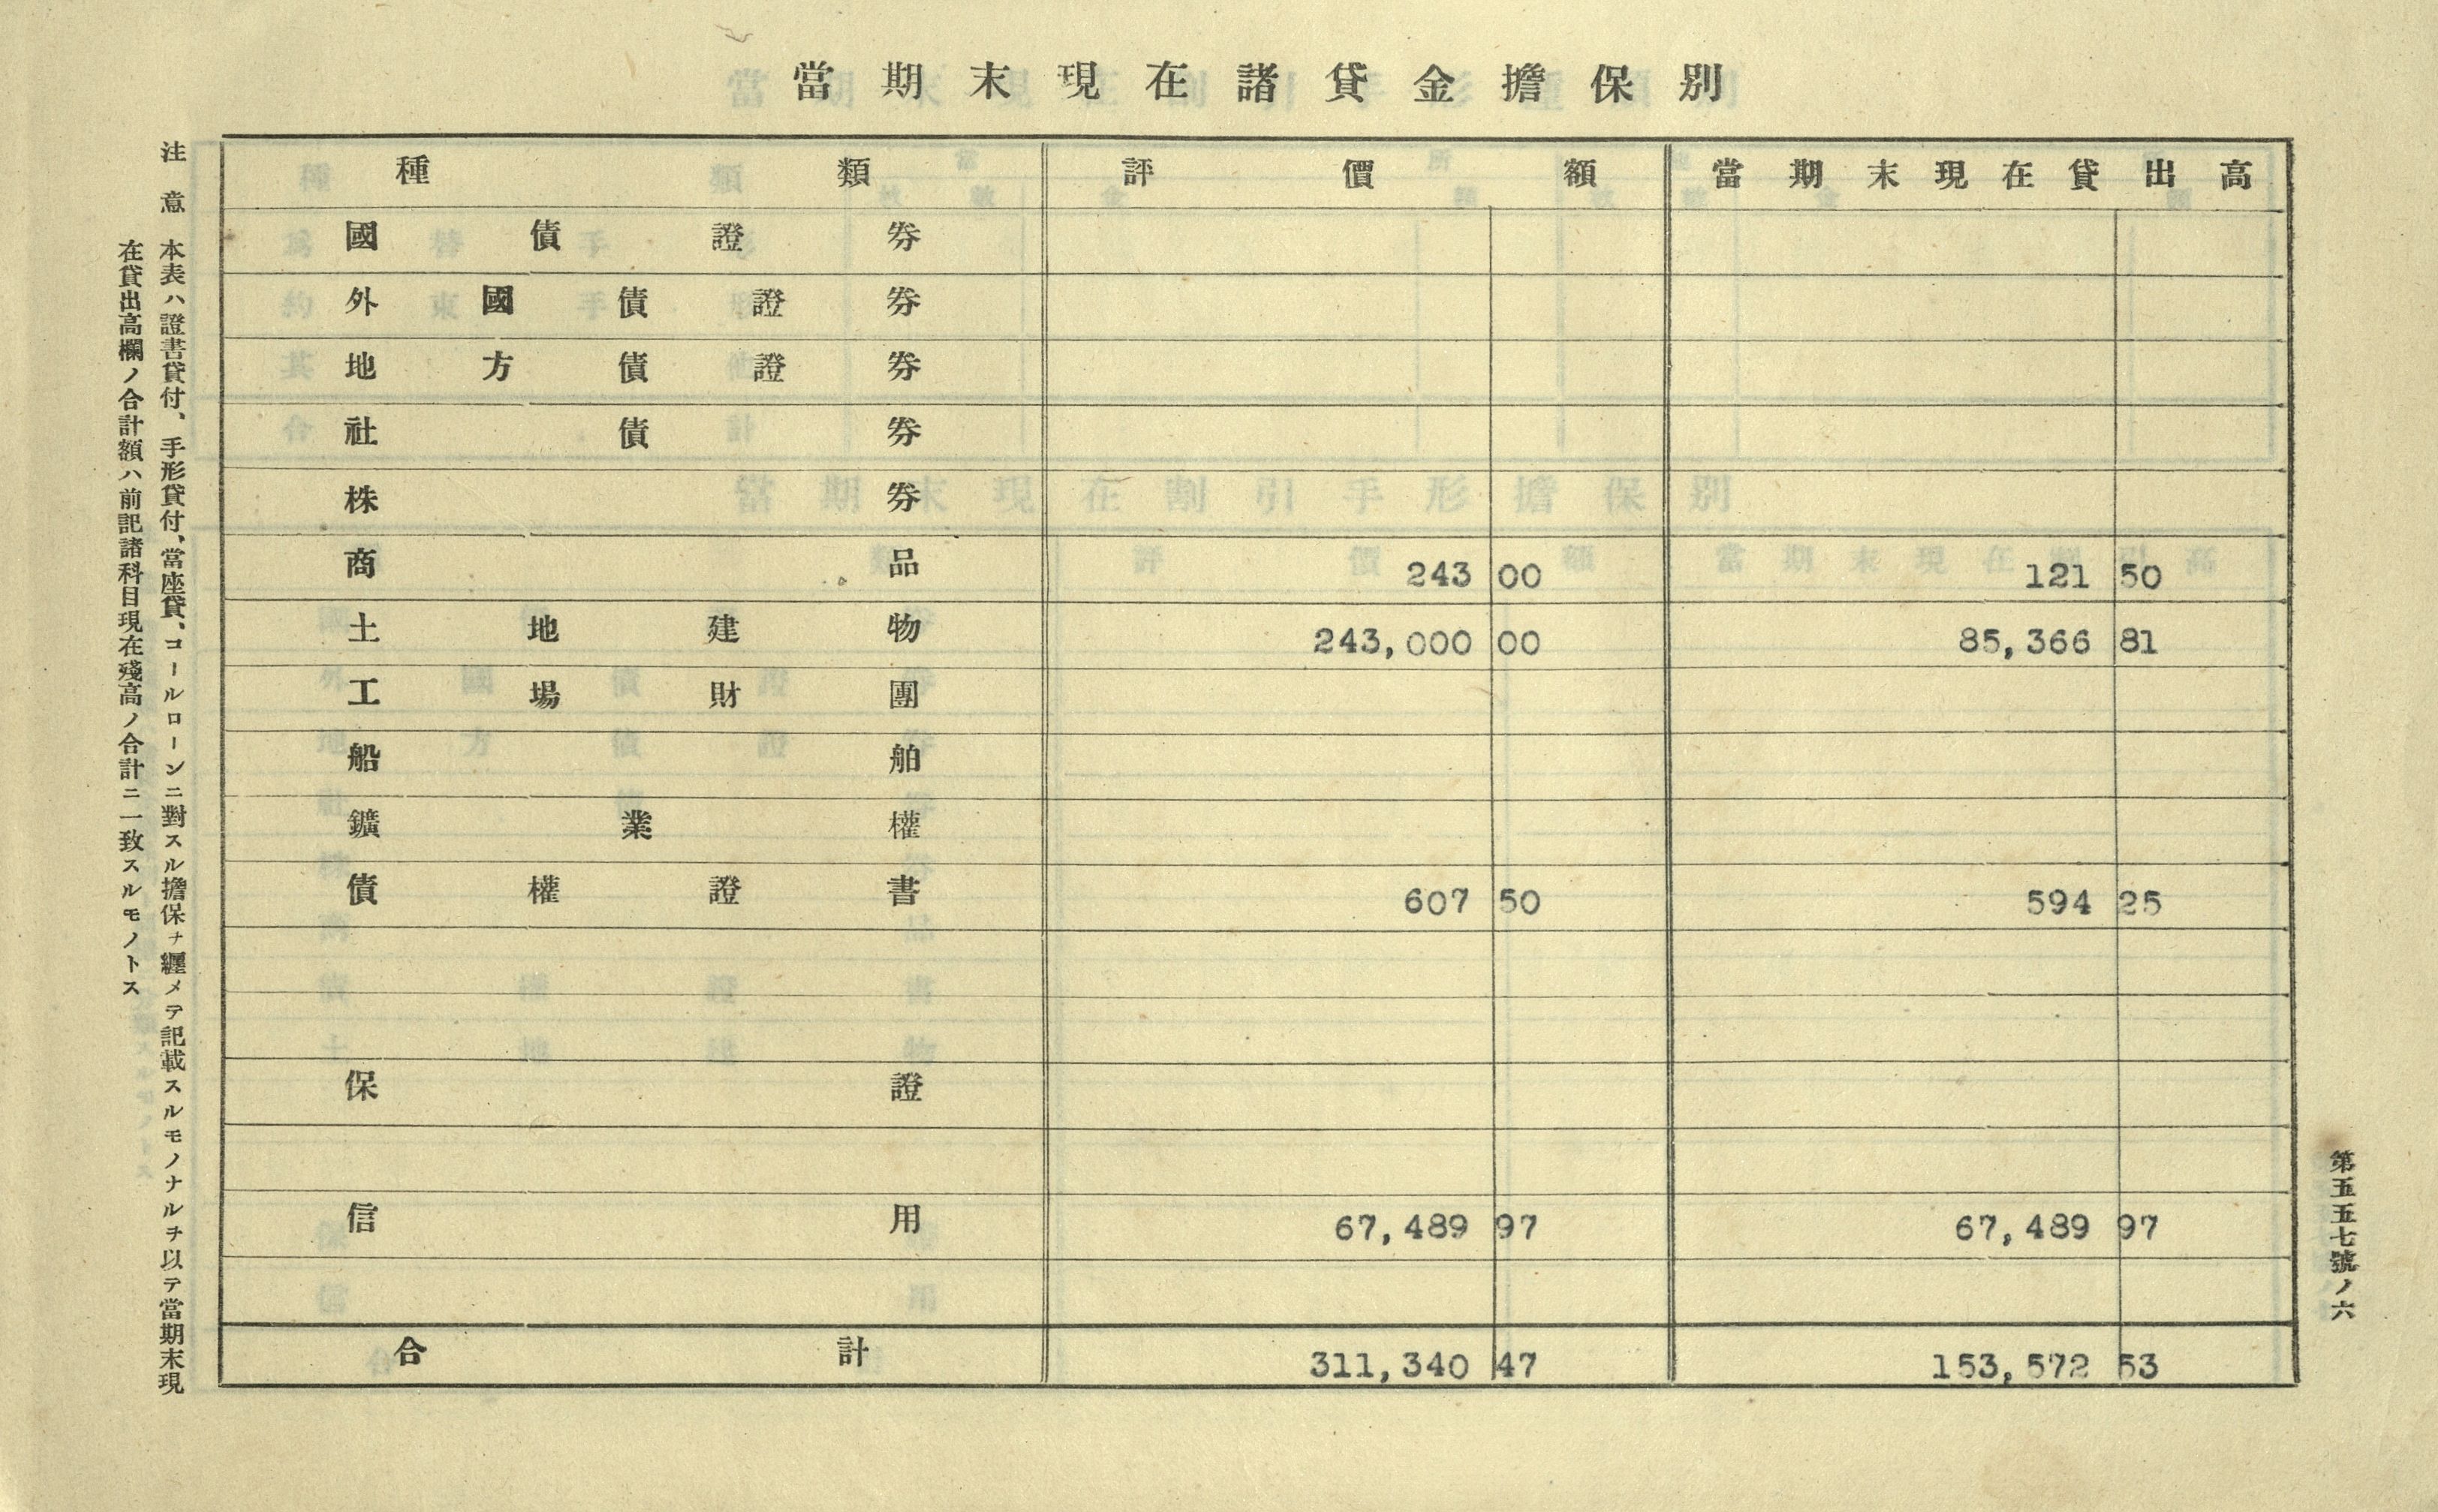 當期末現在諸貸金擔保別
種類 評價額 當期末現在貸出高
國債證券
外國債證券
地方債證券
社債券
株券
商品 243 00 121 50
土地建物 243,000 00 85,366 81
工場財團
船舶
鑛業權
債權證書 607 50 594 25
保證
信用 67,489 97 67,489 97
合計 311,340 47 153,572 53
注意 本表ハ證書貸付、手形貸付、當座貸、コールローンニ對スル擔保ヲ纒メテ記載スルモノナルヲ以テ當期末現
在貸出高欄ノ合計額ハ前記諸科目現在殘高ノ合計ニ一致スルモノトス
第五五七號ノ六